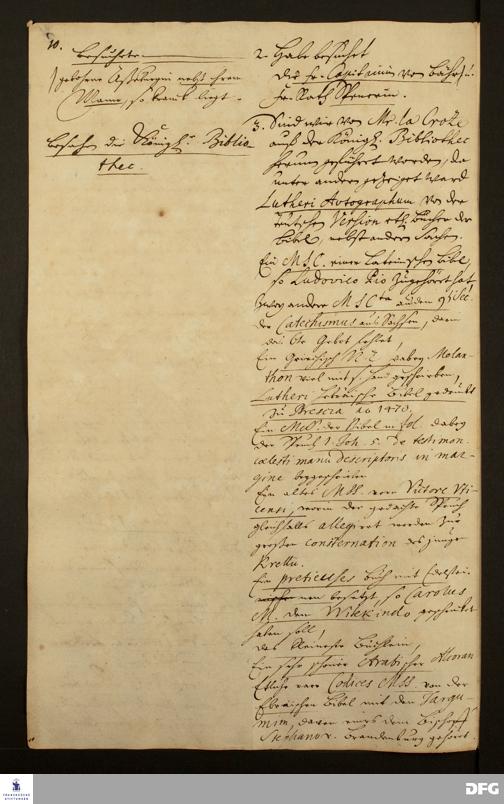 10.
besuchte
gebohrne Aßeburgin nebst ihrem
Mann, so krank liegt.
besahe die Königl. Biblio
thec.
2. Habe besuchet
den Hr. Capitain von
Hr. Rath Spenerin.
3. Sind wir von Mr. la Croze
auf der Königl. Bibliothec
herum geführet worden, da
unter andern gezeiget ward
Lutheri Avtographum von der
teutschen Version etl. Bücher der
Bibel, nebst andern Sachen.
Ein MSC. einer Lateinischen Bibel
so Ludovico Pio zugehöret hat
Zwey andere MSCta aus dem
der Catechismus aus Sachsen, darin
das 6te Gebot fehlet,
Ein Griechisch N. T. dabey Melan-
thon viel mit s. Hand geschrieben,
Lutheri Hebräische Bibel gedruckt
zu Brescia ao
Ein MSS. der Bibel in fol. dabey
der Spruch 1. Joh. 5. de testimon.
cælesti manu descriptoris in mar-
gine beygeschrieben
Ein altes MSS. vom Victore Vti-
censi, worin der gedachte Spruch
gleichfalls allegiret worden zur
großen consternation des jungen
Krettu.
Ein pretieuses Buch mit Edelstei-
nen besetzt, so Carolus
M. dem Witekindo geschenket
haben soll,
das kleineste Büchlein,
Ein sehr schöner Arabischer Alcoran
Etliche rare Codices MSS. von der
Ebräischen Bibel mit den Targu-
mim, davon eins dem Bischoff
Stephanor. Brandenburg gehöret
DFG